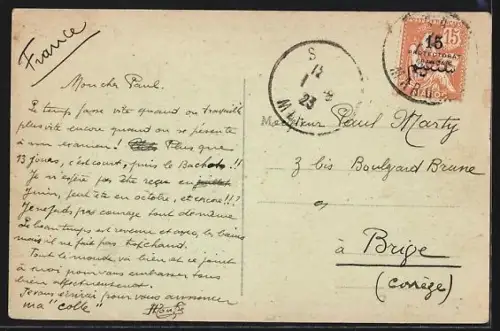 France
Mon cher Paul.
Le temps passe vite quand on travaille
plus vite encore quand on se présente
à son examen! Plus que
13 jours, c'est court, puis le Bachot.!!
Je n'espère pas être reçu en juillet
juin, peut être en octobre, et encore!!?
Je ne perds pas courage tout de même
Le beau temps est revenu et après les bains
mais il ne fait pas trop chaud.
Tout le monde va bien et se joint
à moi pour vous embrasser tous
bien affectueusement.
Je vous écrirai pour vous annoncer
ma "colle"
15
PROTECTORAT
FRANÇAIS
15
MAROC
S
23
Monsieur Paul Marty
3 bis Boulevard Brune
à Brive
(Corrèze)